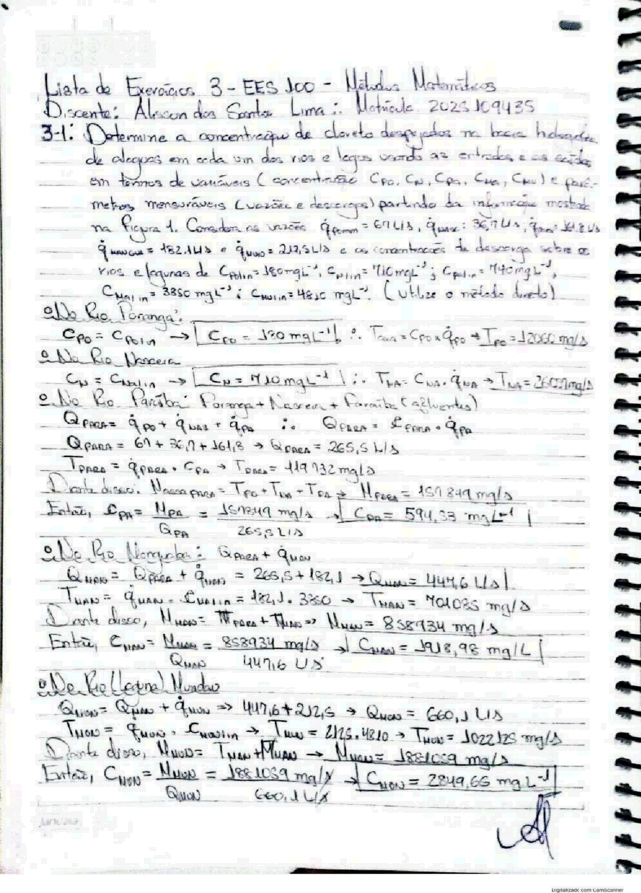 Lista de Exercícios 3 - EES 100 - Métodos Matemáticos
Discente: Alisson dos Santos Lima ∴ Matrícula 2025109435
3-1: Determine a concentração de cloreto despejados na bacia hidrográfica
de alagoas em cada um dos rios e lagos usando as entradas e as saídas
em termos de variáveis (concentração CPO, CN, CPA, CMA, CMU) e parâ-
metros mensuráveis (vazões e descargas) partindo da informação mostrada
na Figura 1. Considere as vazões = 67 L/s, 36,7 L/s, 161,8 L/s
= 182,1 L/s e = 212,5 L/s e as concentrações de descarga sobre os
rios e lagunas de CPO,in = 180 mg L⁻¹, = 710 mg L⁻¹; = 740 mg L⁻¹,
= 3850 mg L⁻¹; = 4810 mg L⁻¹. (utilize o método direto)
• No Rio Poranga:
CPO = CPO,in → CPO = 180 mg L⁻¹ ∴ = CPO × q̇PO → TPO = 12060 mg/s
• No Rio Nasceia
CN = CNA,in → CN = 710 mg L⁻¹ ∴ TNA = CNA · q̇NA → TNA = 26057 mg/s
• No Rio Paraíba: Poranga + Nasceia + Paraíba (afluentes)
QPARA = q̇PO + q̇NAS + q̇PA ∴ QPARA = · q̇PA
QPARA = 67 + 36,7 + 161,8 → QPARA = 265,5 L/s
TPARA = q̇PARA · CPA → TPARA = 119732 mg/s
Diante disso. = TPO + TNA + TPA → MPARA = 157849 mg/s
Então, CPA = MPA = 157849 mg/s → CPA = 594,53 mg L⁻¹
QPA 265,5 L/s
• No Rio : QPARA + q̇MAN
QMAN = QPARA + q̇MAN = 265,5 + 182,1 → QMAN = 447,6 L/s
TMAN = qMAN · CMA,in = 182,1 · 3850 → TMAN = 701085 mg/s
Diante disso, MMAN = TPARA + TMAN → MMAN = 858934 mg/s
Então, CMAN = MMAN = 858934 mg/s → CMAN = 1918,98 mg/L
QMAN 447,6 L/s
• No Rio (Laguna) Mundau
QMUN = QMAN + q̇MUN => 447,6 + 212,5 → QMUN = 660,1 L/s
TMUN = q̇MUN · CMUN,in → TMUN = 212,5 · 4810 → TMUN = 1022125 mg/s
Diante disso, MMUN = TMUN + MMAN → MMUN = 1881059 mg/s
Então, CMUN = MMUN = 1881059 mg/s → CMUN = 2849,65 mg L⁻¹
QMUN 660,1 L/s
Digitalizado com CamScanner